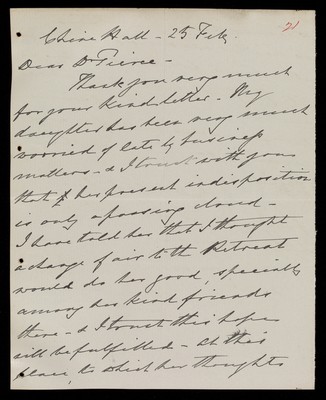 21
Chine Hall - 25 Feb.
Dear Dr Pierce -
Thank you very much
for your kind letter - My
daughter has been very much
worried of late by business
matters - & I trust with you
that her present indisposition
is only a passing cloud -
I have told her that I thought
a change of air to the Retreat
would do her good, specially
among her kind friends
there - & I trust this hope
will be fulfilled - At this
place, to which her thoughts